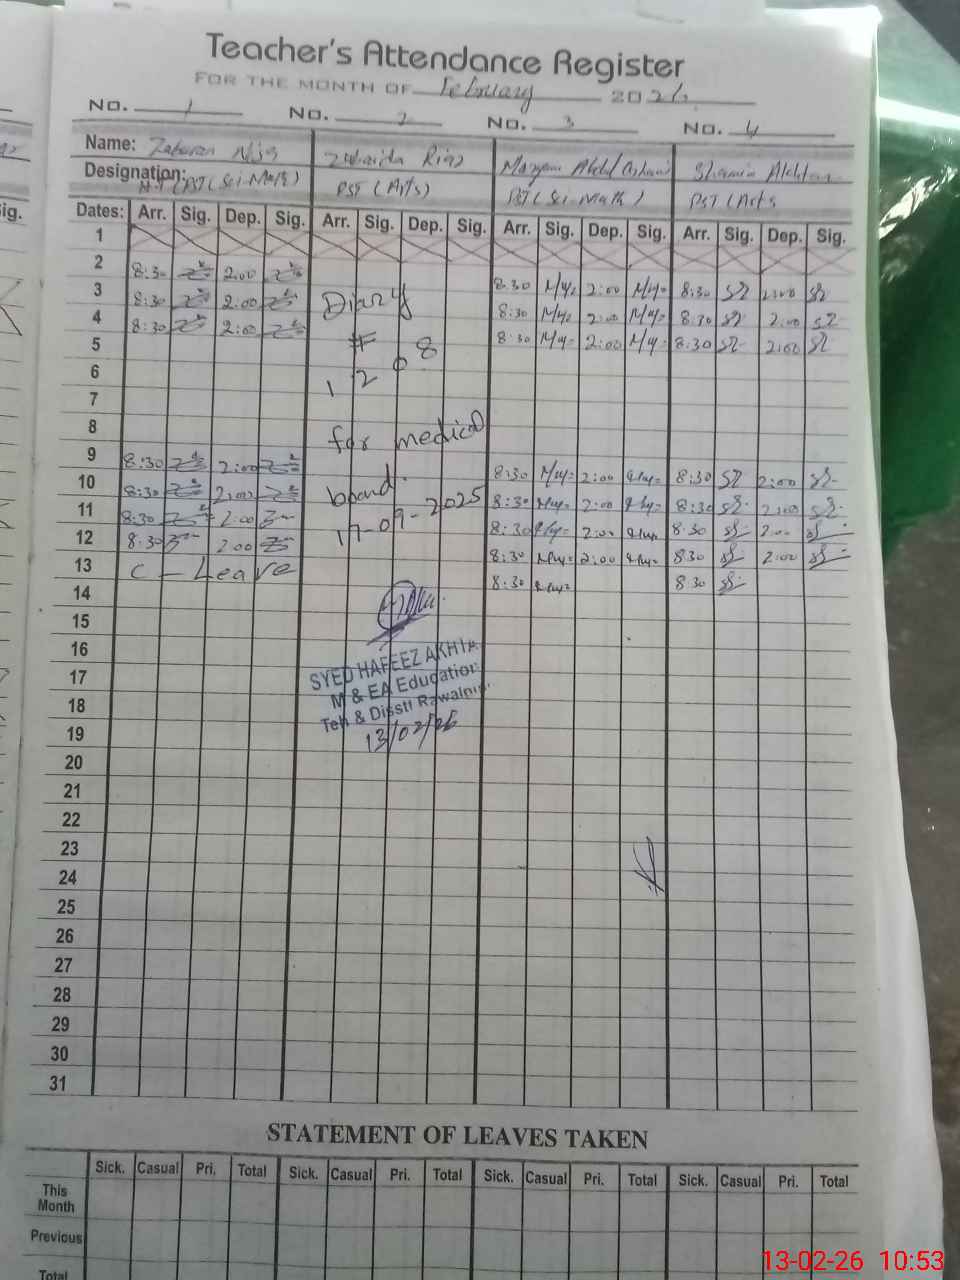 Teacher's Attendance Register
FOR THE MONTH OF February 2026
No. 1 No. 2 No. 3 No. 4
Name: Zaberan Zubaida Riaz Maryam Abdul Shamim Akhtar
Designation: PST (Sci-Math) PST (Arts) PST (Sci-Math) PST (Arts
Dates: Arr. Sig. Dep. Sig. Arr. Sig. Dep. Sig. Arr. Sig. Dep. Sig. Arr. Sig. Dep. Sig.
1
2 8:30 2:00 8:30 2:00 8:30 2:00
3 8:30 2:00 Diary 8:30 2:00 8:30 2:00
4 8:30 2:00 # 8:30 2:00 8:30 2:00
5
6 1208
7
8 for medical
9 8:30 2:00 8:30 2:00 8:30 2:00
10 8:30 2:00 board 8:30 2:00 8:30 2:00
11 8:30 2:00 17-09-2025 8:30 2:00 8:30 2:00
12 8:30 2:00 8:30 2:00 8:30 2:00
13 C-Leave 8:30 8:30
14
15
16 SYED HAFEEZ AKHTA
17 M & EA Education
18 Teh & Disstt Rawalpin
19 13/02/26
20
21
22
23
24
25
26
27
28
29
30
31
STATEMENT OF LEAVES TAKEN
Sick. Casual Pri. Total Sick. Casual Pri. Total Sick. Casual Pri. Total Sick. Casual Pri. Total
This
Month
Previous
Total
13-02-26 10:53